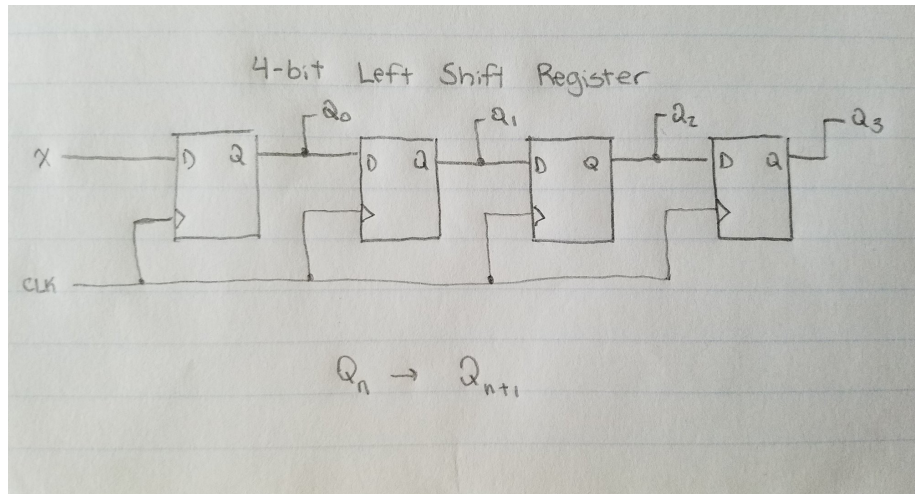 4-bit Left Shift Register
Q₀ Q₁ Q₂ Q₃
X D Q D Q D Q D Q
CLK
Qₙ → Qₙ₊₁